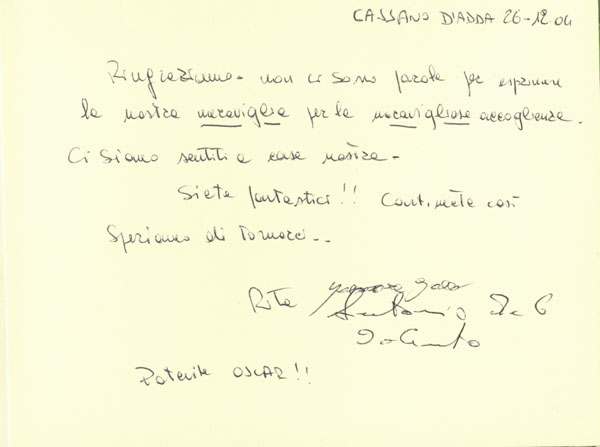 CASSANO D'ADDA 26-12 04
Ringraziamo - non ci sono parole per esprimere
la nostra meraviglia per la meravigliosa accoglienza.
Ci siamo sentiti a casa nostra -
Siete fantastici!! Continuate così
Speriamo di tornarci..
Rita
Antonio De C
OSCAR!!